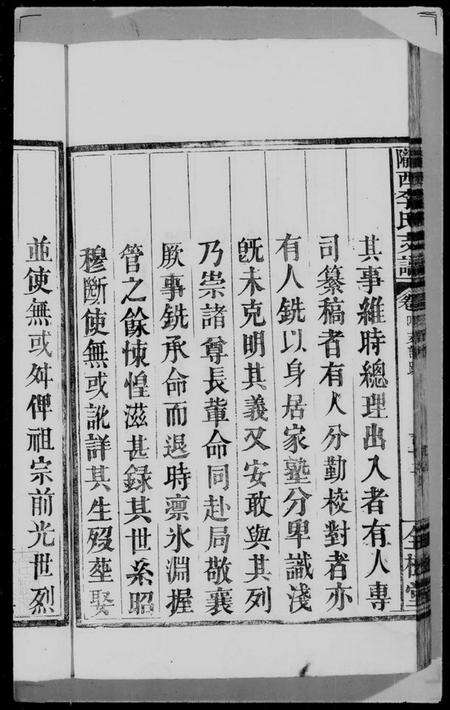 隴西李氏支譜
其事維時總理出入者有人專
司纂稿者有人分勤校對者亦
有人銑以身居家塾分卑識淺
旣未克明其義又安敢與其列
乃崇諸尊長輩命同赴局敬襄
厥事銑承命而退時凛冰淵握
管之餘悚惶滋甚錄其世系昭
穆斷使無或訛詳其生歿塟娶
並使無或舛俾祖宗前光世烈